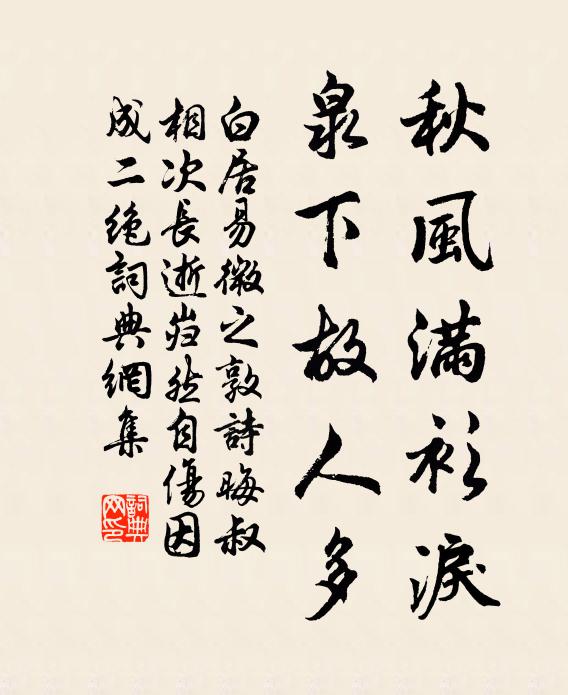 秋風滿衫淚
泉下故人多
白居易微之敦詩晦叔
相次長逝岿然自傷因
成二絶詞典網集
詞典網印